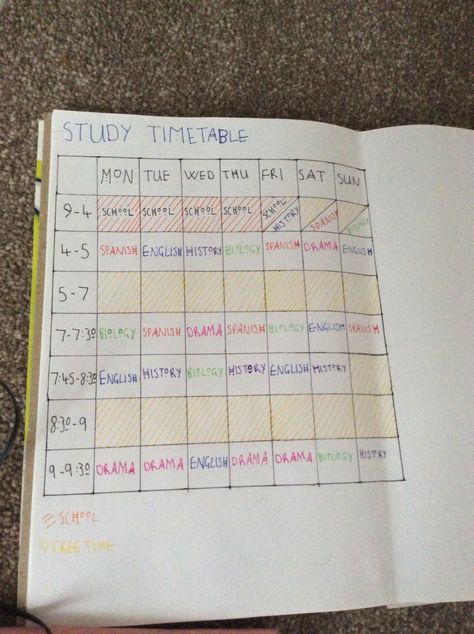 STUDY TIMETABLE
MON TUE WED THU FRI SAT SUN
9-4 SCHOOL SCHOOL SCHOOL SCHOOL SCHOOL HISTORY SPANISH BIOLOGY
4-5 SPANISH ENGLISH HISTORY BIOLOGY SPANISH DRAMA ENGLISH
5-7
7-7:30 BIOLOGY SPANISH DRAMA SPANISH BIOLOGY ENGLISH SPANISH
7:45-8:30 ENGLISH HISTORY BIOLOGY HISTORY ENGLISH HISTORY
8:30-9
9-9:30 DRAMA DRAMA ENGLISH DRAMA DRAMA BIOLOGY HISTORY
SCHOOL
FREE TIME